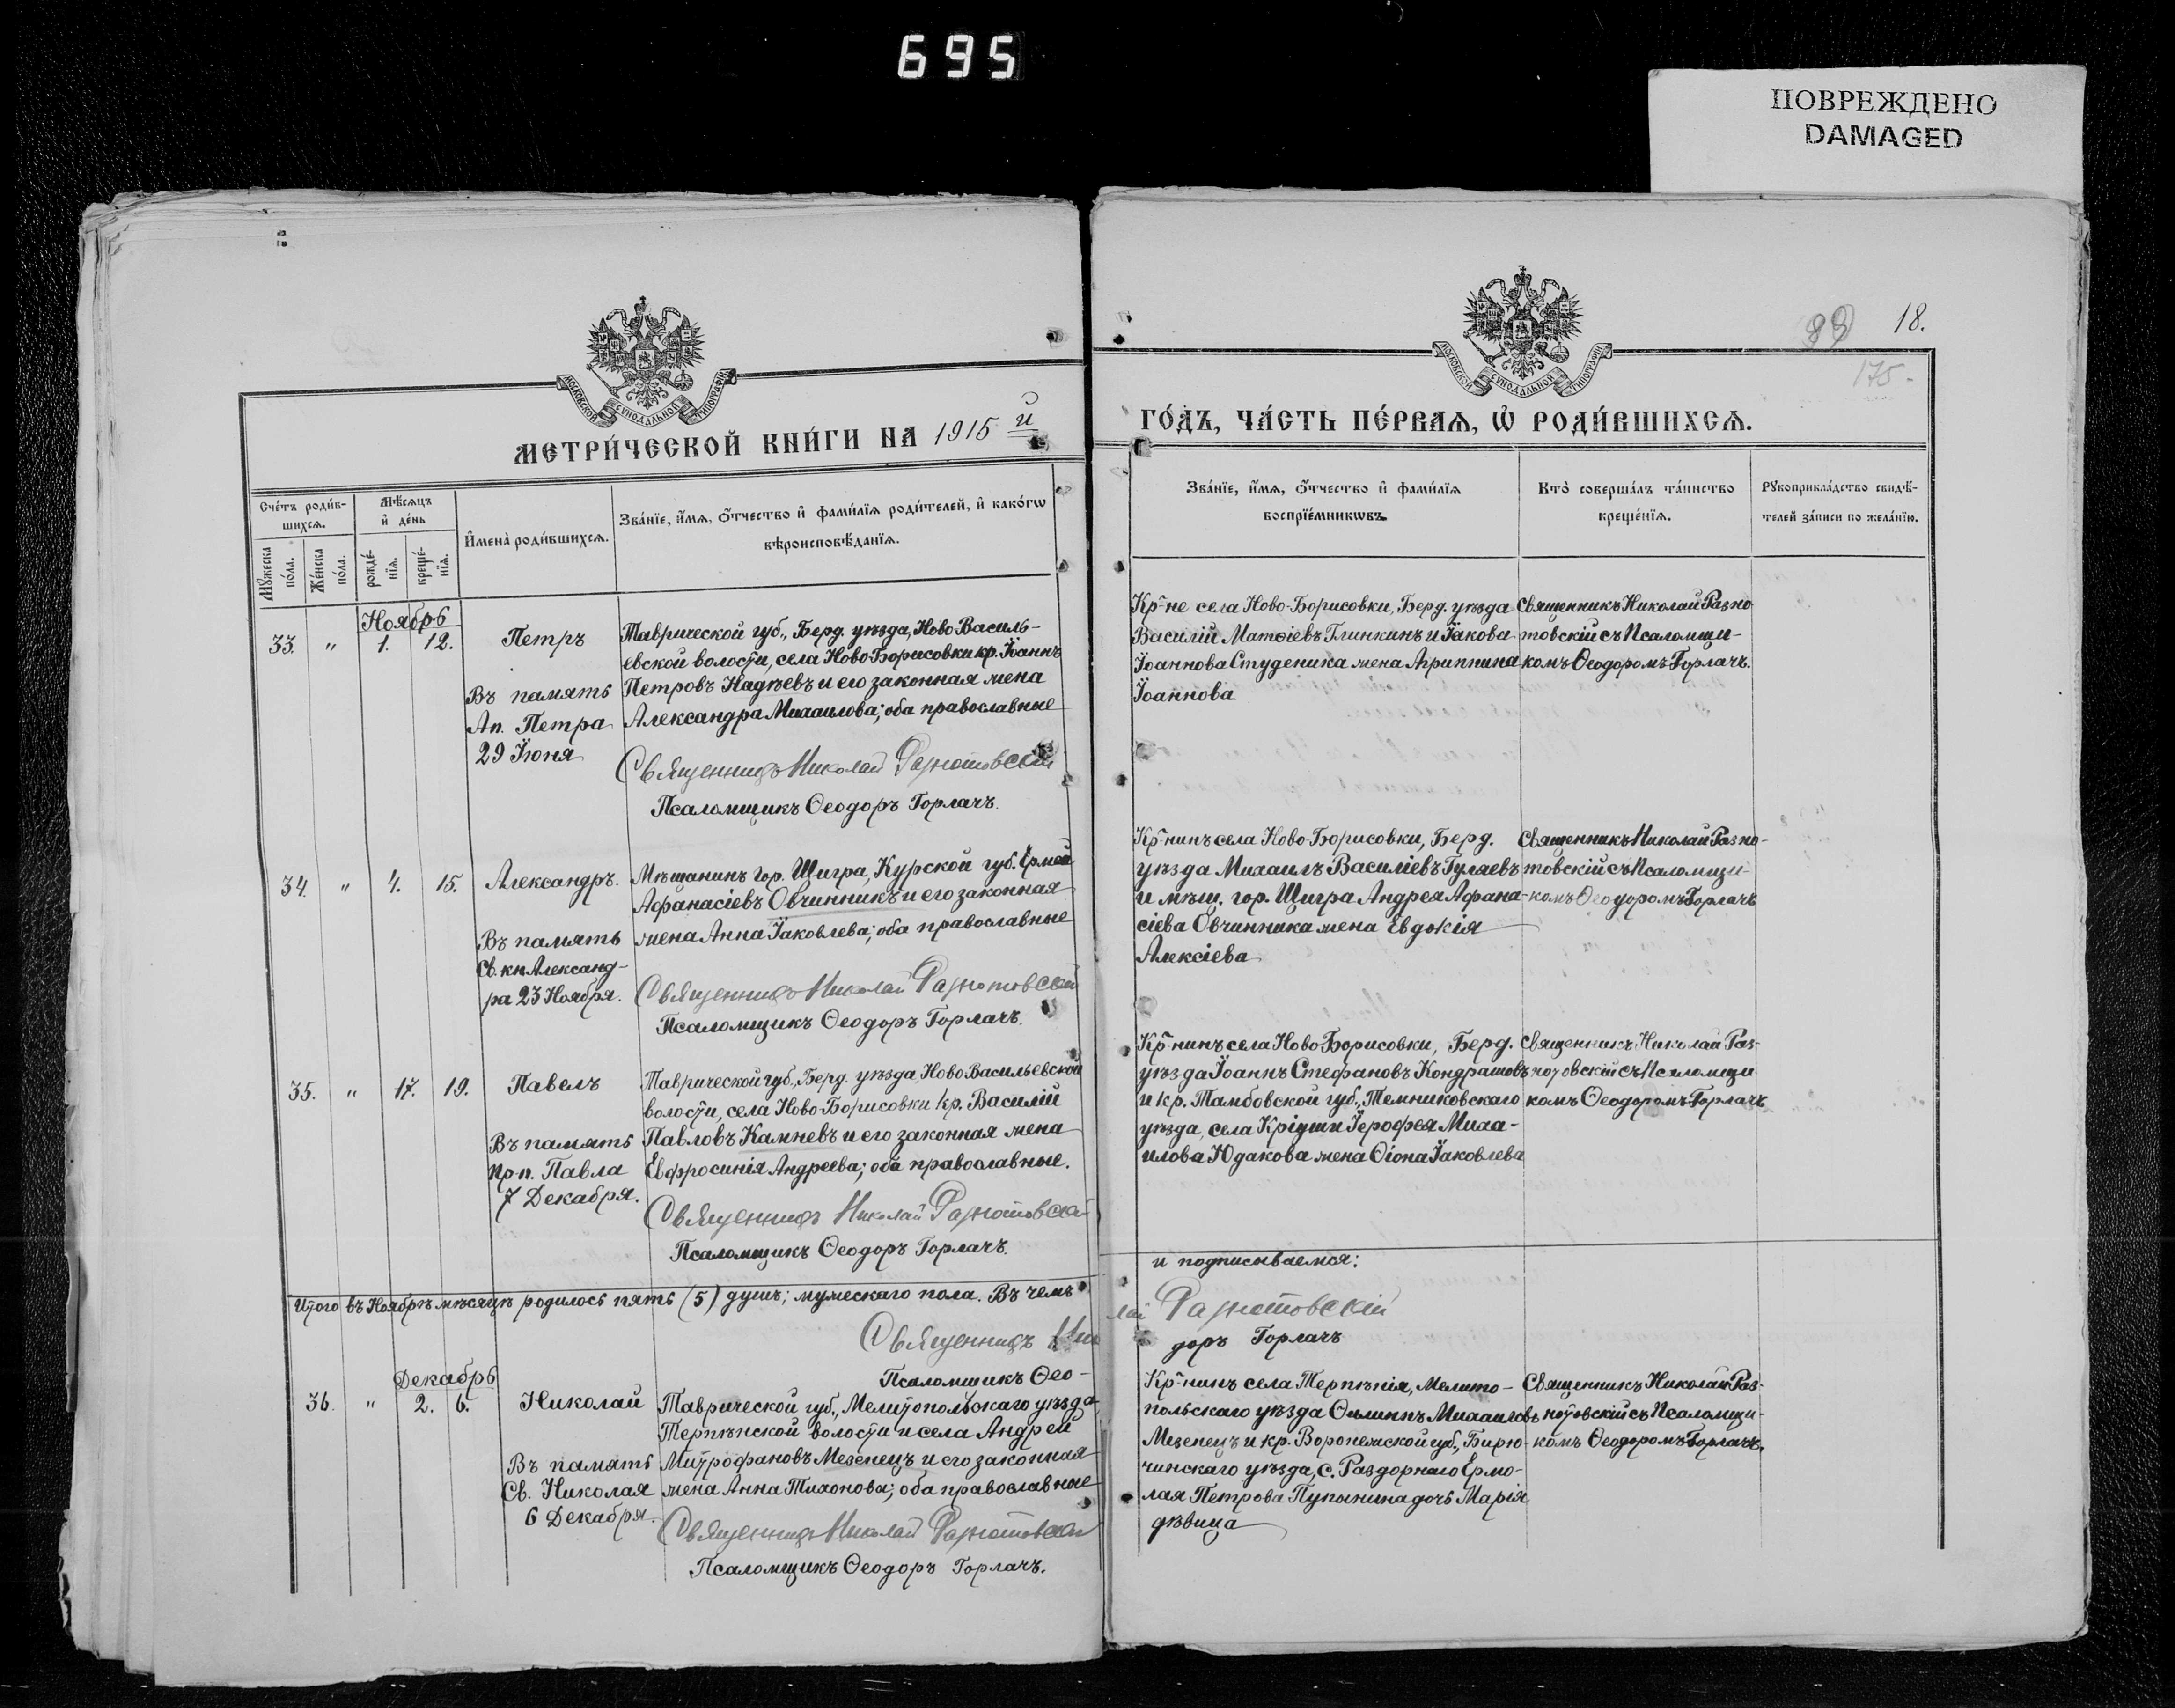 695
ПОВРЕЖДЕНО
DAMAGED
МОСКОВСКОЙ СѴНОДАЛЬНОЙ ТИПОГРАФІИ
МЕТРИ́ЧЕСКОЙ КНИ́ГИ НА 1915 й
Сче́тъ роди́в-
шихсѧ.
Мѣ́сѧцъ
и҆ де́нь
И҆мена̀ роди́вшихсѧ.
Зва́нїе, и҆́мѧ, ѻ҆́тчество и҆ фами́лїѧ роди́телей, и҆ како́гѡ
вѣроисповѣ́данїѧ.
Мꙋ́жеска
по́ла.
Же́нска
по́ла.
рожде́-
нїѧ.
креще́-
нїѧ.
Ноябрь
33. " 1. 12. Петръ
Въ память
Ап. Петра
29 Іюня
Таврической губ., Берд. уѣзда, Ново Василь-
евской волости, села Ново Борисовки кр. Іоаннъ
Петровъ Кадѣевъ и его законная жена
Александра Михаилова; оба православные
Священникъ Николай Разнотовскій
Псаломщикъ Ѳеодоръ Горлачъ.
34. " 4. 15. Александръ.
Въ память
Св. кн. Александ-
ра 23 Ноября.
Мѣщанинъ гор. Щигра, Курской губ. Ермей
Афанасіевъ Овчинникъ и его законная
жена Анна Іаковлева; оба православные
Священникъ Николай Разнотовскій
Псаломщикъ Ѳеодоръ Горлачъ.
35. " 17. 19. Павелъ
Въ память
Прп. Павла
7 Декабря.
Таврической губ., Берд. уѣзда, Ново Васильевской
волости, села Ново-Борисовки кр. Василій
Павловъ Камневъ и его законная жена
Евфросинія Андреева; оба православные.
Священникъ Николай Разнотовскій
Псаломщикъ Ѳеодоръ Горлачъ.
Итого въ Ноябрѣ мѣсяцѣ родилось пять (5) душъ; мужескаго пола. Въ чемъ
Священникъ Нико
Псаломщикъ Ѳео-
Декабрь
36. " 2. 6. Николай
Въ память
Св. Николая
6 Декабря.
Таврической губ., Мелитопольскаго уѣзда
Терпѣнской волости и села Андрей
Митрофановъ Мезенецъ и его законная
жена Анна Тихонова; оба православные
Священникъ Николай Разнотовскій
Псаломщикъ Ѳеодоръ Горлачъ.
18.
175-
МОСКОВСКОЙ СѴНОДАЛЬНОЙ ТИПОГРАФІИ
ГО́ДЪ, ЧА́СТЬ ПЕ́РВАѦ, Ѡ҆ РОДИ́ВШИХСѦ.
Зва́нїе, и҆́мѧ, ѻ҆́тчество и҆ фами́лїѧ
воспрїе́мникѡвъ.
Кто̀ соверша́лъ та́инство
креще́нїѧ.
Рꙋкоприкла́дство свидѣ́-
телей за́писи по жела́нїю.
Кр-не села Ново-Борисовки, Берд. уѣзда
Василій Матѳіевъ Глинкинъ и Іакова
Іоаннова Студеника жена Агриппина
Іоаннова
Священникъ Николай Разно-
товскій съ Псаломщи-
комъ Ѳеодоромъ Горлачъ.
Кр-нинъ села Ново-Борисовки, Берд.
уѣзда Михаилъ Василіевъ Гуляевъ
и мѣщ. гор. Щигра Андрея Афана-
сіева Овчинника жена Евдокія
Алексіева
Священникъ Николай Разно-
товскій съ Псаломщи-
комъ Ѳеодоромъ Горлачъ
Кр-нинъ села Ново Борисовки, Берд.
уѣзда Іоаннъ Стефановъ Кондрашовъ
и кр. Тамбовской губ., Темниковскаго
уѣзда, села Кріуши Іерофея Миха-
илова Юдакова жена Ѳіона Іаковлева
Священникъ Николай Раз-
нотовскій съ Псаломщи
комъ Ѳеодоромъ Горлачъ
и подписываемся:
лай Разнотовскій
доръ Горлачъ
Кр-нинъ села Терпѣнія, Мелито-
польскаго уѣзда Филиппъ Михаиловъ
Мезенецъ и кр. Воронежской губ., Бирю-
чинскаго уѣзда, с. Раздорнаго Ермо-
лая Петрова Пупынина дочь Марія
дѣвица
Священникъ Николай Раз-
нотовскій съ Псаломщи-
комъ Ѳеодоромъ Горлачъ.